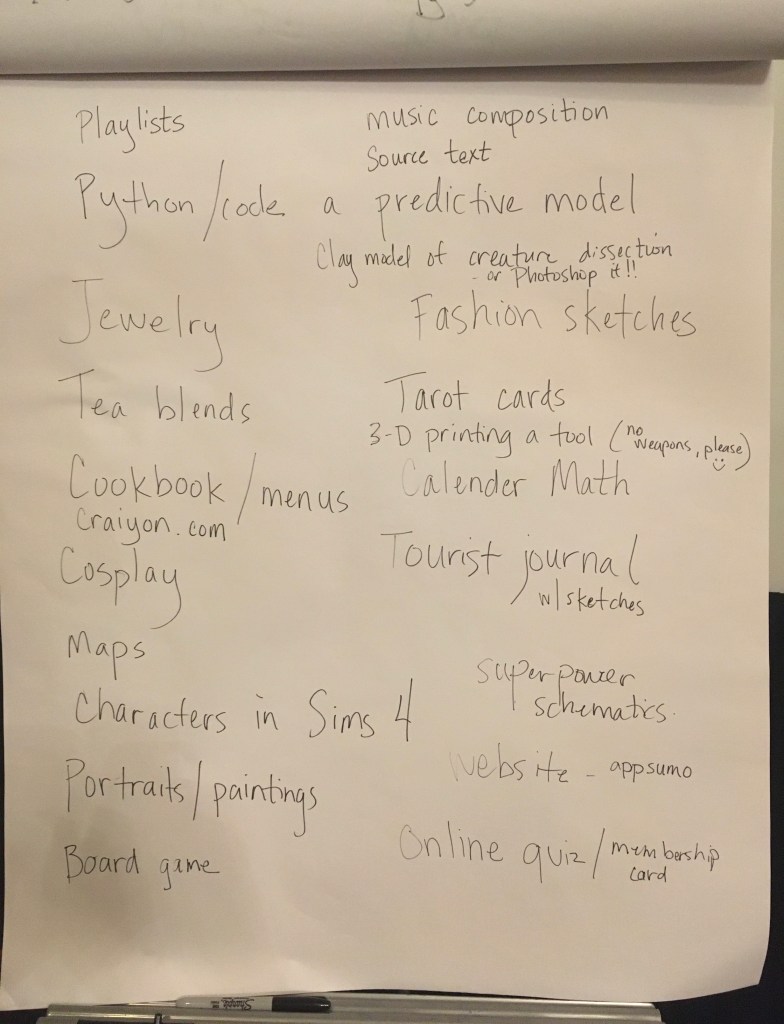 Playlists
music composition
Source text
Python/code a predictive model
Clay model of creature dissection
- or Photoshop it!!
Jewelry
Fashion sketches
Tea blends
Tarot cards
3-D printing a tool (no weapons, please)
Cookbook/menus
Calender Math
Craiyon.com
Cosplay
Tourist journal
w/sketches
Maps
superpower
schematics.
Characters in Sims 4
website - appsumo
Portraits/paintings
Online quiz/membership
card
Board game
Sharpie